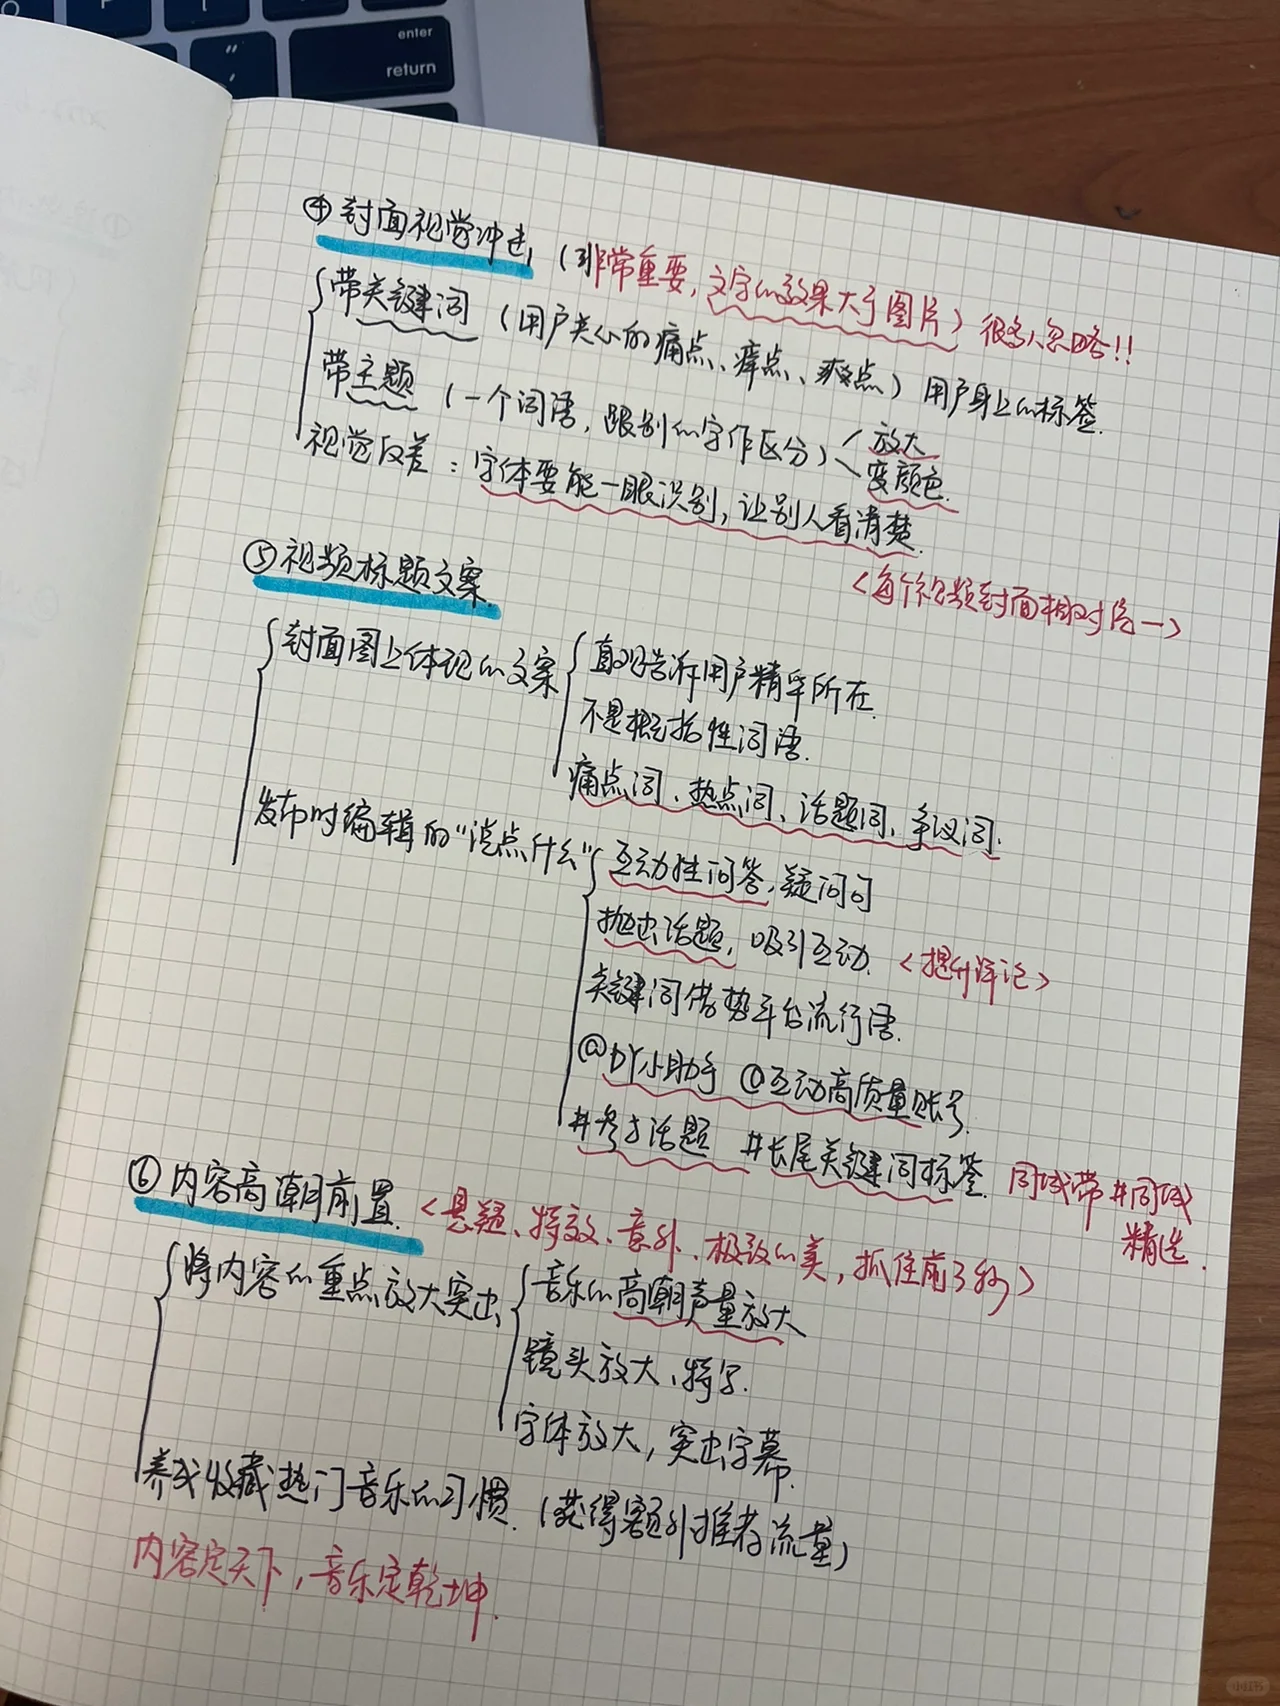 enter
return
④封面视觉冲击 (非常重要，文字的效果大于图片) 很多人忽略!!
带关键词 (用户关心的痛点、痒点、爽点) 用户身上的标签.
带主题 (一个词语，跟别的字作区分) 放大
变颜色.
视觉反差：字体要能一眼识别，让别人看清楚.
<每个视频封面相对统一>
⑤视频标题文案.
封面图上体现的文案
直观告诉用户精华所在.
不是概括性词语.
痛点词、热点词、话题词、争议词.
发布时编辑的“说点什么”
互动性问答，疑问句
抛出话题，吸引互动. <提升评论>
关键词借势平台流行语.
@DY小助手 @互动高质量账号.
#参与话题 #长尾关键词标签. 同城带#同城
精选.
⑥内容高潮前置. <悬疑、特效、意外、极致的美，抓住前3秒>
将内容的重点放大突出
音乐的高潮声量放大
镜头放大、特写.
字体放大，突出字幕.
养成收藏热门音乐的习惯. (获得额外推荐流量)
内容定天下，音乐定乾坤.
小红书